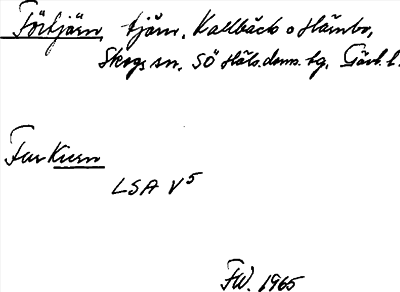 Förtjärn, tjärn, Kallbäck o Hämbo,
Skogs sn. SÖ Häls. doms. tg. Gävl. l.
Fur Kiern
LSA V5
FW. 1965